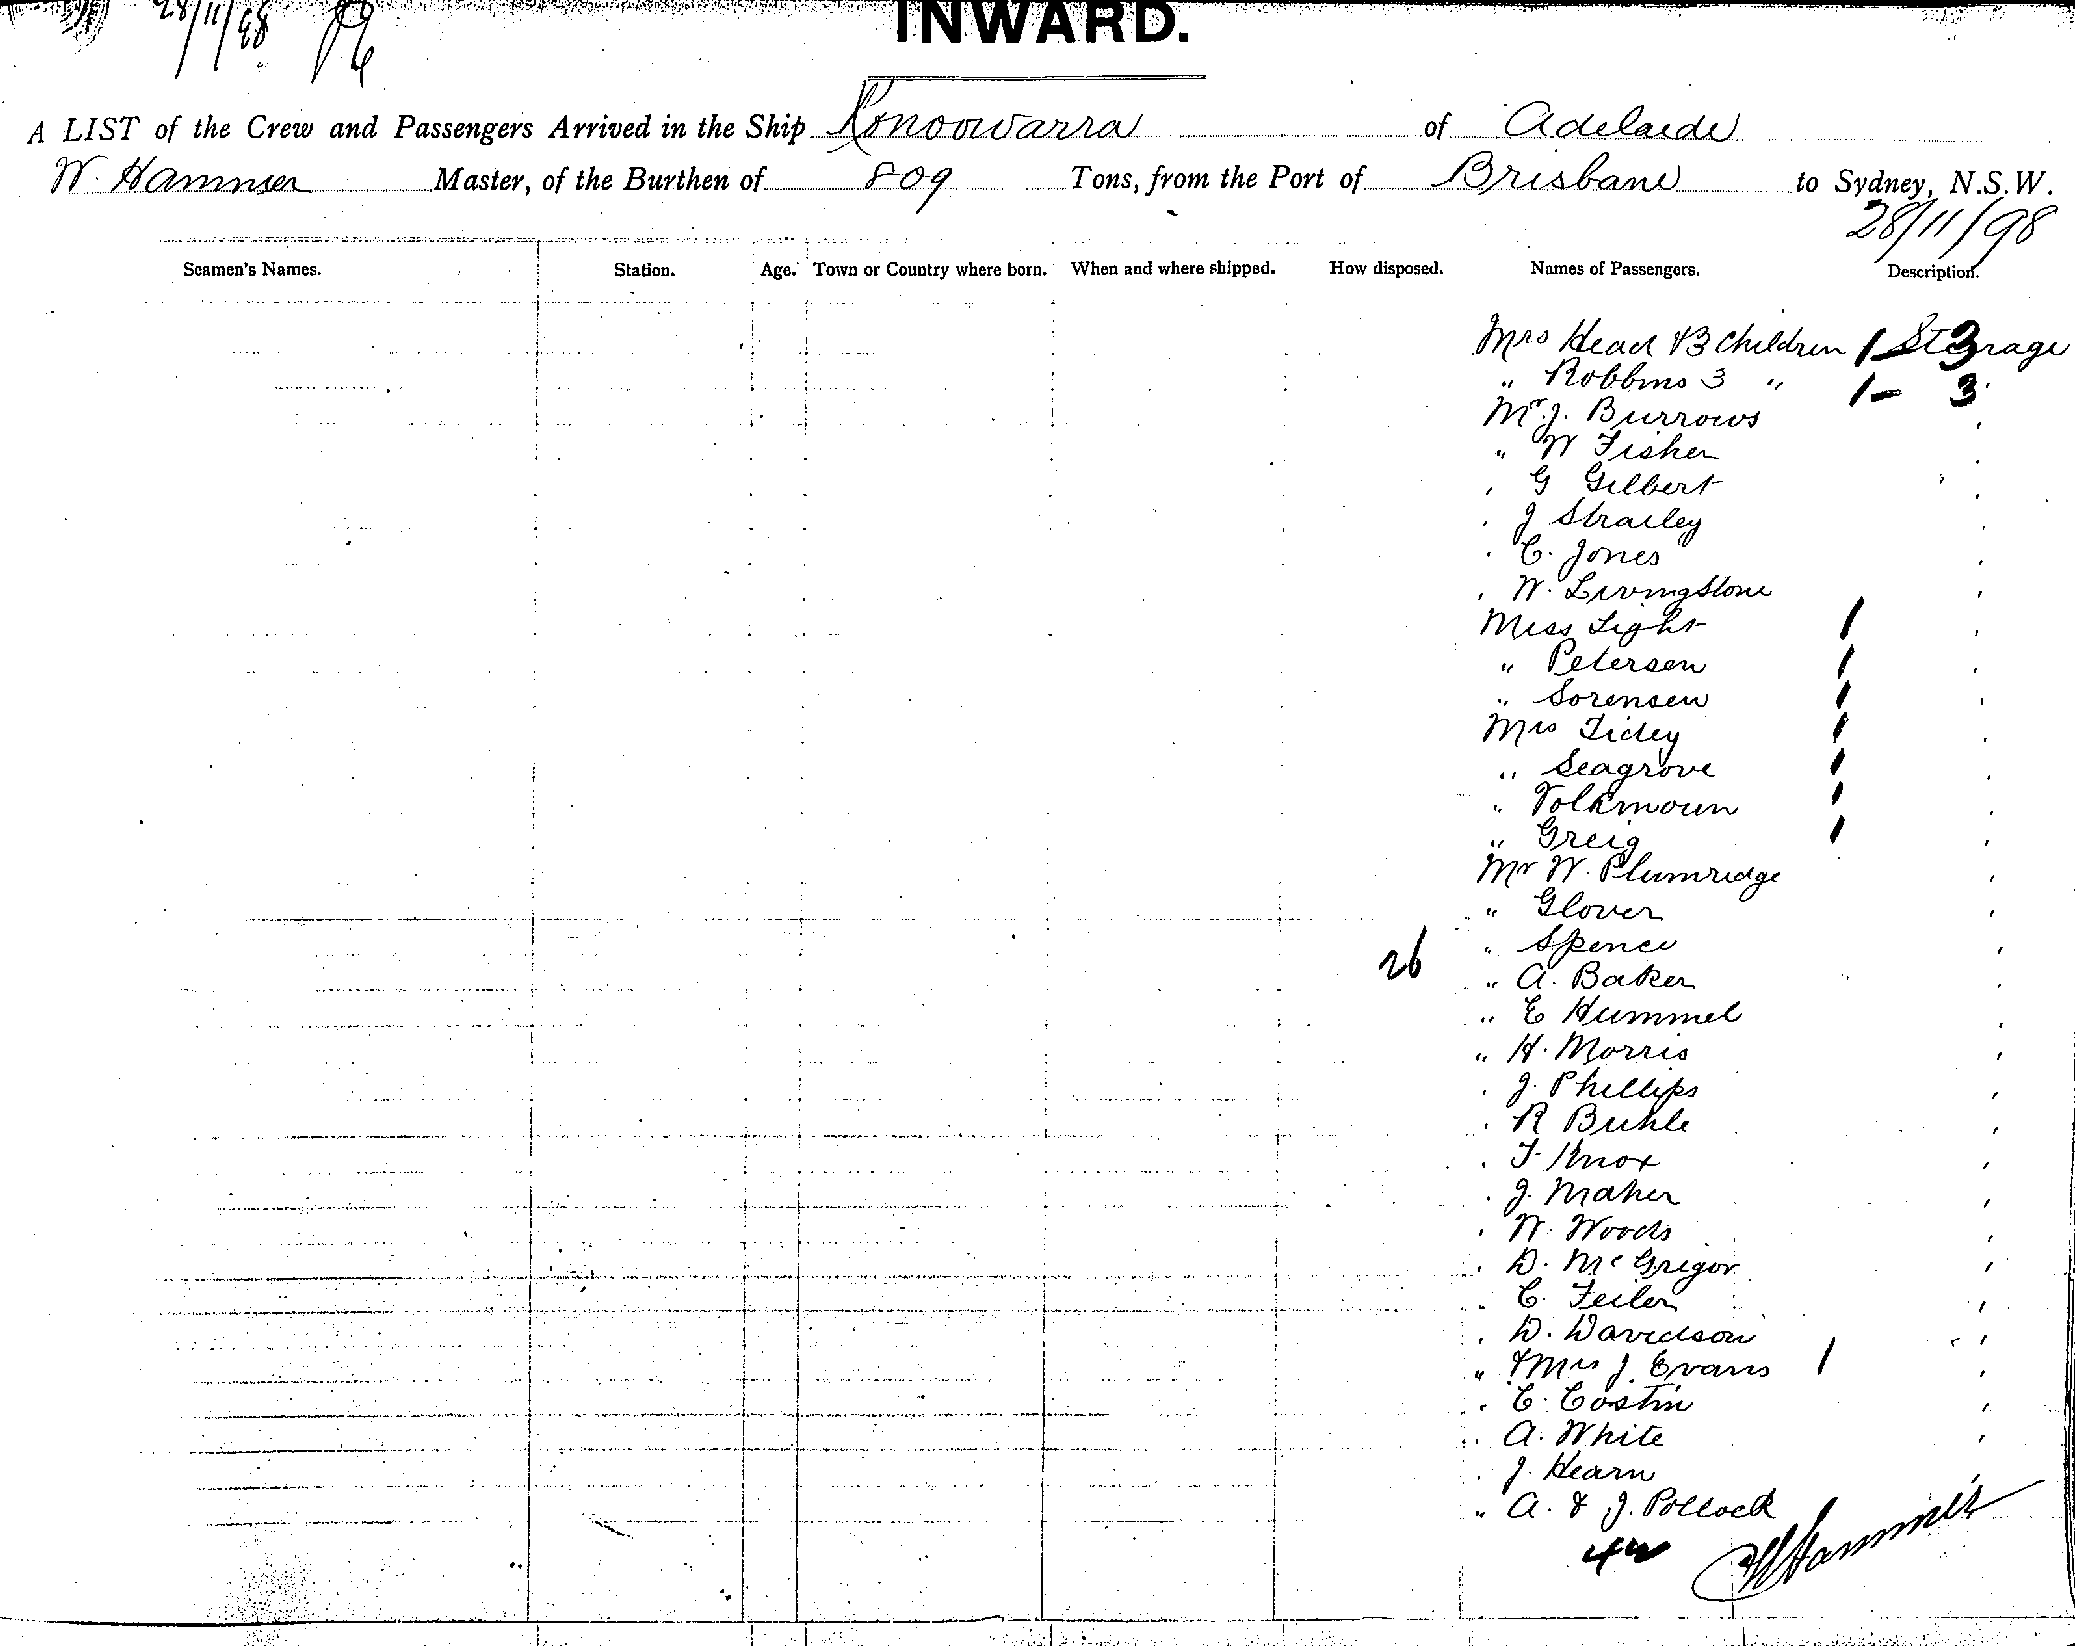 28/11/98
INWARD.
A LIST of the Crew and Passengers Arrived in the Ship Konoowarra of Adelaide
W. Hammer Master, of the Burthen of 809 Tons, from the Port of Brisbane to Sydney, N.S.W.
28/11/98
Seamen's Names. Station. Age. Town or Country where born. When and where shipped. How disposed. Names of Passengers. Description.
Mrs Head & 3 Children 1 - 3 Steerage
" Robbins 3 " 1 - 3
Mr J. Burrows
" W Fisher
" G Gilbert
" J Strailey
" C. Jones
" W. Livingstone
Miss Light 1
" Petersen 1
" Sorensen 1
Mrs Tidey 1
" Seagrove 1
" Volkmoun 1
" Greig 1
Mr W. Plumridge
" Glover
" Spence
26
" A. Baker
" E Hummel
" H. Morris
" J. Phillips
" R Buhle
" F. Knox
" J. Maher
" W. Woods
" D. McGregor
" C. Feiler
" D. Davidson
" & Mrs J. Evans 1
" C. Costin
" A. White
" J. Hearn
" A. & J. Pollock
42